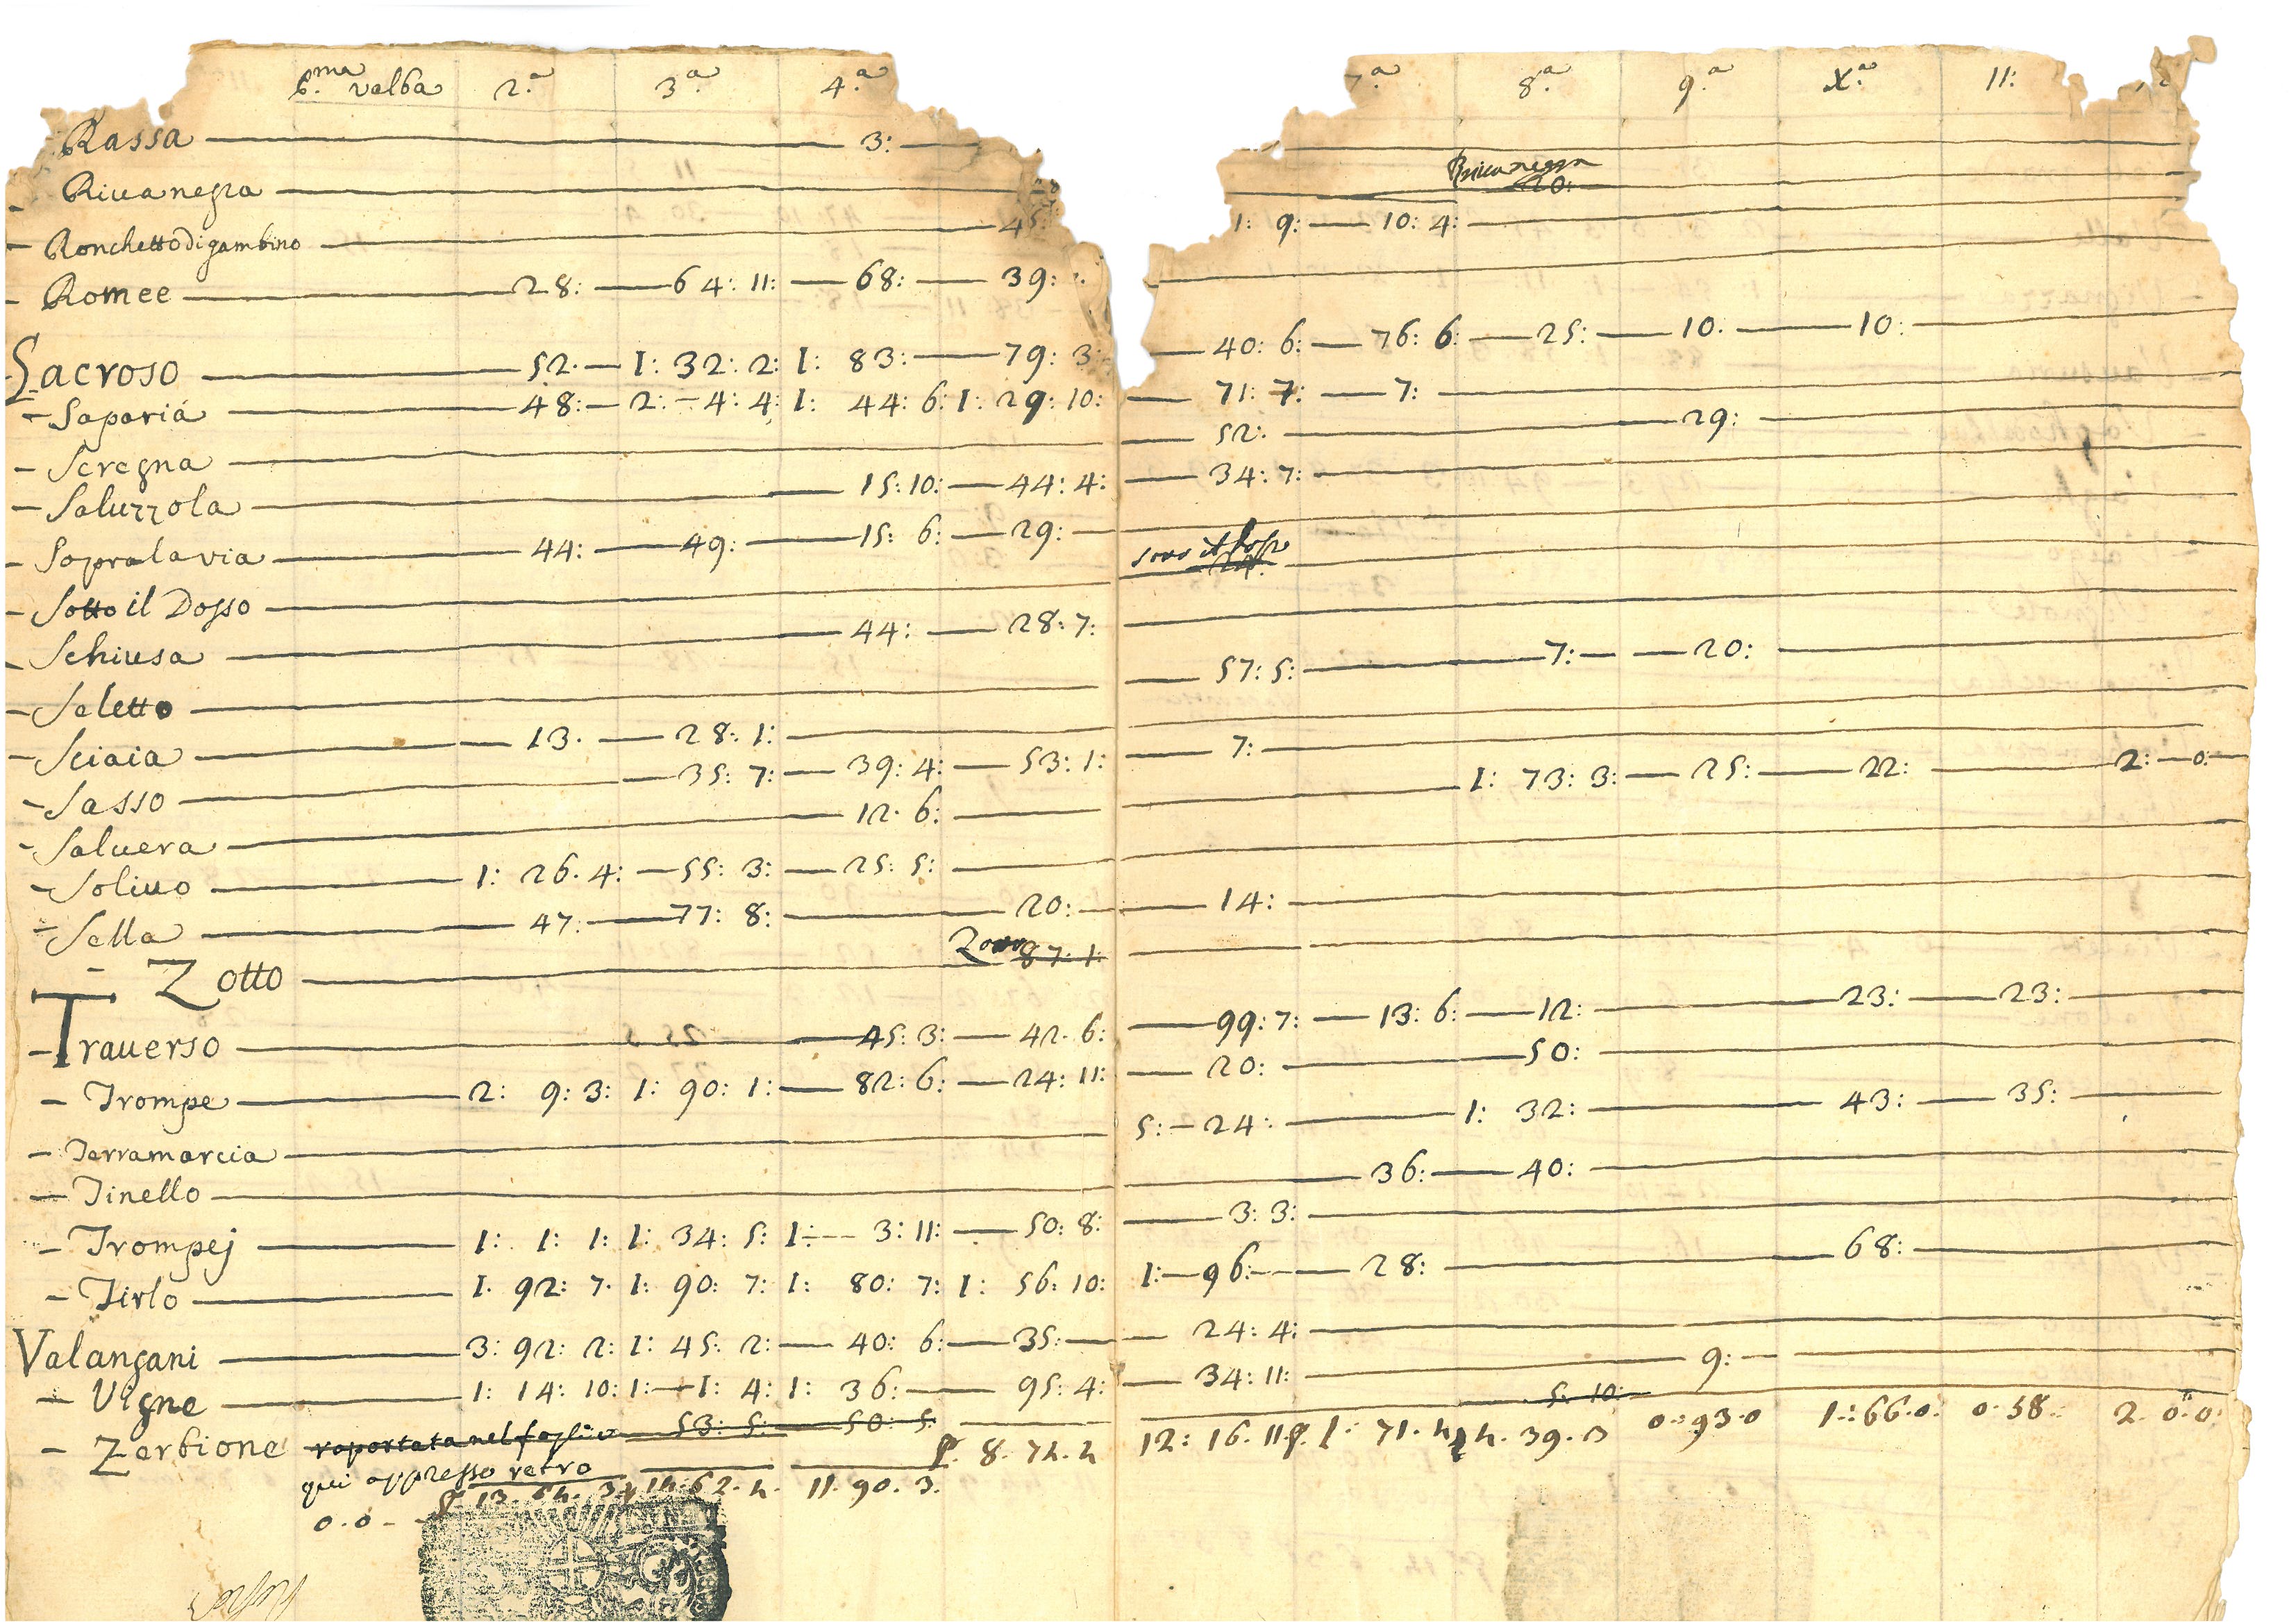 valba 2.a 3.a 4.a 8.a 9.a X.a 11:
Rassa 3:
Riuanegra Riuanegra 20:
Ronchetto di gambino 45: 1: 9: 10: 4:
Romee 28: 64: 11: 68: 39:
Sacroso 52. 1: 32: 2: 1: 83: 79: 3: 40: 6: 76: 6: 25: 10. 10:
Saparià 48: 2: 4: 4: 1: 44: 6: 1: 29: 10: 71: 7: 7:
Seregna 52: 29:
Saluzzola 15: 10: 44: 4: 34: 7:
Sopra la via 44: 49: 15: 6: 29:
Sotto il Dosso
Schiusa 44: 28: 7:
Seletto 57: 5: 7: 20:
Sciaia 13. 28: 1:
Sasso 35: 7: 39: 4: 53: 1: 7:
Saluera 12. 6: 1: 73: 3: 25: 22: 2: 0:
Soliuo 1: 26. 4: 55: 3: 25: 5:
Sella 47: 77: 8: 20: 14:
Zotto 87: 1:
Trauerso 45: 3: 42. 6: 99: 7: 13: 6: 12: 23: 23:
Trompe 2: 9: 3: 1: 90: 1: 82: 6: 24: 11: 20: 50:
Terramarcia 5: 24: 1: 32: 43: 35:
Tinello 36: 40:
Trompej 1: 1: 1: 1: 34: 5: 1: 3: 11: 50: 8: 3: 3:
Tirlo 1. 92: 7. 1: 90: 7: 1: 80: 7: 1: 56: 10: 1: 96: 28: 68:
Valangani 3: 92: 2: 1: 45: 2: 40: 6: 35: 24: 4:
Vigne 1: 14: 10: 1: 1: 4: 1: 36: 95: 4: 34: 11: 9:
Zerbione raportata nel foglio 53: 5: 50: 5. 5: 10:
qui appresso retro
0.0 11. 90. 3. 12: 16. 11 0: 93.0 1:66.0. 0.58. 2. 0.0.